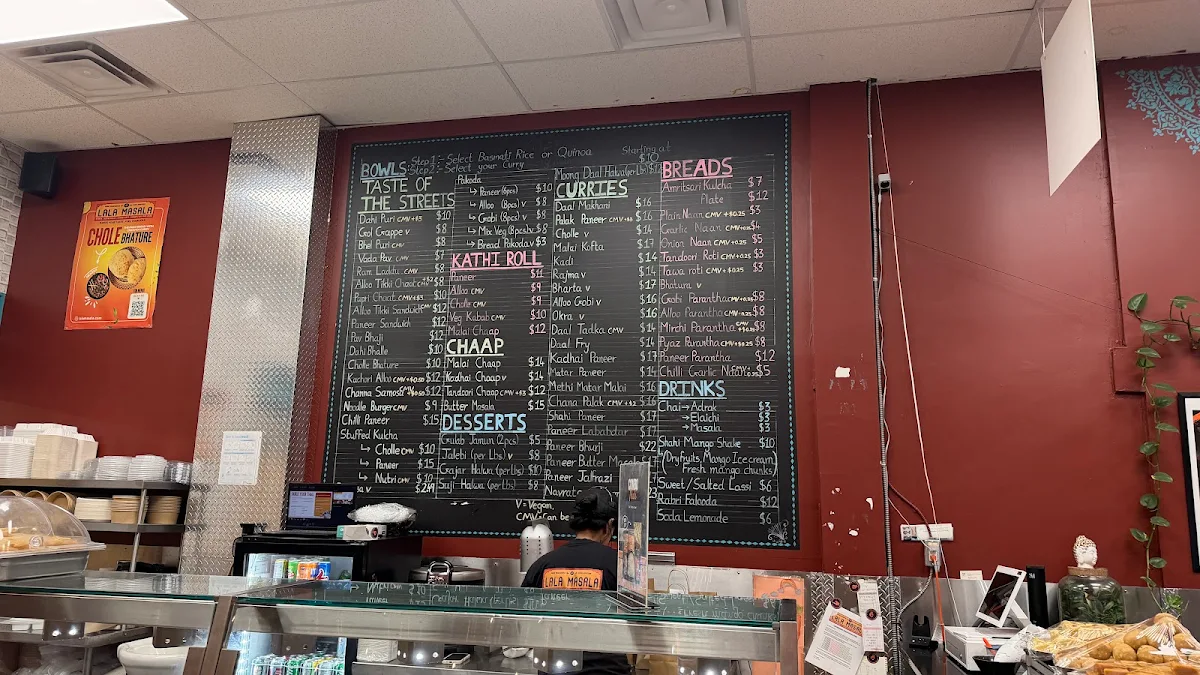 LALA MASALA
CHOLE
BHATURE
BOWLS Step 1:- Select Basmati Rice or Quinoa Starting at
Step 2:- Select your Curry $10
TASTE OF
THE STREETS
Dahi Puri CMV+$3 $10
Gol Grappe v $8
Bhel Puri CMV $8
Vada Pav CMV $7
Ram Laddu CMV $8
Alloo Tikki Chaat CMV+$2 $8
Papri Chaat CMV+$3 $10
Alloo Tikki Sandwich CMV $12
Paneer Sandwich $12
Pav Bhaji $12
Dahi Bhalle $10
Cholle Bhature $10
Kachori Alloo CMV+$0.50 $12
Channa Samosa $12
Noodle Burger CMV $9
Chilli Paneer $15
Stuffed Kulcha
↳ Cholle CMV $10
↳ Paneer $15
↳ Nutri CMV $10
Pakoda
↳ Paneer (8pcs) $10
↳ Alloo (8pcs) v $8
↳ Gobi (8pcs) v $8
↳ Mix Veg (8pcs) v $8
↳ Bread Pakoda v $3
KATHI ROLL
Paneer $11
Alloo CMV $9
Cholle CMV $9
Veg Kabab CMV $10
Malai Chaap $12
CHAAP
Malai Chaap $14
Kadhai Chaap v $14
Tandoori Chaap CMV+$3 $12
Butter Masala $15
DESSERTS
Gulab Jamun (2pcs) $5
Jalebi (per Lbs) v $8
Gajar Halwa (per Lbs) $10
Suji Halwa (per Lbs) $8
Moong Daal Halwa (per Lbs)
CURRIES
Daal Makhani $16
Palak Paneer $16
Cholle v $14
Malai Kofta $17
Kadi $14
Rajma v $14
Bharta v $17
Alloo Gobi v $16
Okra v $16
Daal Tadka CMV $14
Daal Fry $14
Kadhai Paneer $17
Matar Paneer $14
Methi Matar Malai $16
Chana Palak CMV+$2 $16
Shahi Paneer $17
Paneer Lababdar $17
Paneer Bhurji $22
Paneer Butter
Paneer Jalfrazi
V = Vegan
BREADS
Amritsari Kulcha $7
Plate $12
Plain Naan CMV+$0.25 $3
Garlic Naan $4
Onion Naan CMV+0.25 $5
Tandoori Roti CMV+0.25 $3
Tawa roti CMV+$0.25 $3
Bhatura v
Gobi Parantha CMV+0.25 $8
Alloo Parantha CMV+0.25 $8
Mirchi Parantha CMV+$0.25 $8
Pyaz Parantha CMV+$0.25 $8
Paneer Parantha $12
Chilli Garlic Naan $5
DRINKS
Chai → Adrak $3
→ Elaichi $3
→ Masala $3
Shahi Mango Shake $10
(Dryfruits, Mango Ice cream
Fresh mango chunks)
Sweet/Salted Lassi $6
Rabri Falooda $12
Soda Lemonade $6
LALA MASALA
LALA MASALA